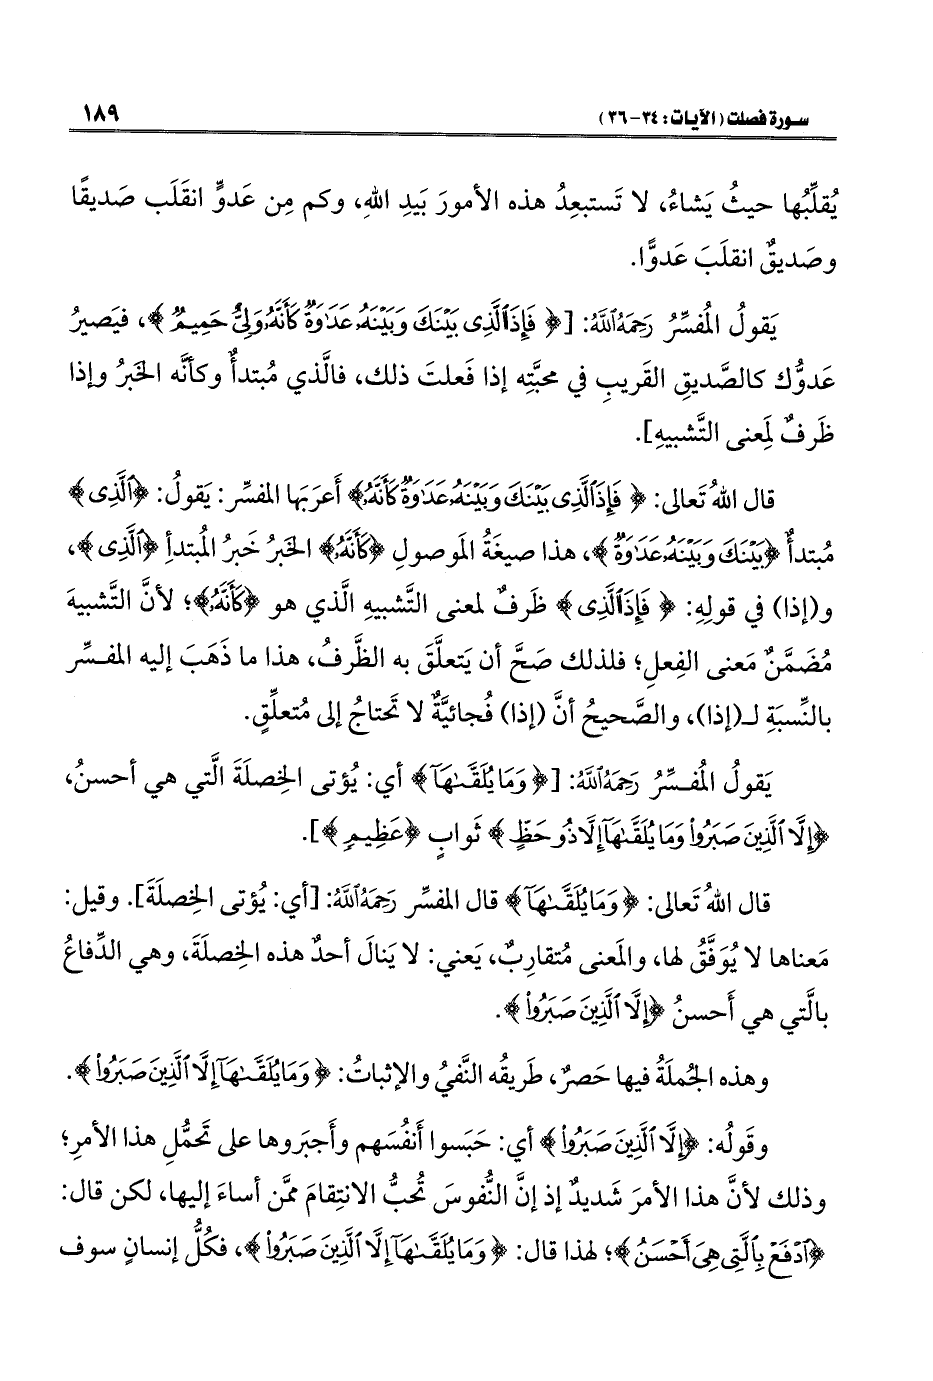 سورة فصلت (الآيات: ٣٤-٣٦) ١٨٩
يُقلِّبُها حيثُ يَشاءُ، لا تَستبعِدُ هذه الأمورَ بَيدِ اللهِ، وكم مِن عَدوٍّ انقلَب صَديقًا
وصَديقٌ انقلَبَ عَدوًّا.
يَقولُ المُفسِّرُ رَحِمَهُ ٱللَّهُ: [﴿ فَإِذَا ٱلَّذِى بَيْنَكَ وَبَيْنَهُۥ عَدَٰوَةٌ كَأَنَّهُۥ وَلِىٌّ حَمِيمٌ ﴾، فيَصيرُ
عَدوُّك كالصَّديقِ القَريبِ في محبَّتِه إذا فَعلتَ ذلك، فالَّذي مُبتدأٌ وكأنَّه الخَبرُ وإذا
ظَرفٌ لِمعنى التَّشبيهِ].
قال اللهُ تَعالى: ﴿ فَإِذَا ٱلَّذِى بَيْنَكَ وَبَيْنَهُۥ عَدَٰوَةٌ كَأَنَّهُۥ﴾ أعرَبَها المفسِّر: يَقولُ: ﴿ٱلَّذِى ﴾
مُبتدأٌ ﴿بَيْنَكَ وَبَيْنَهُۥ عَدَٰوَةٌ ﴾، هذا صيغَةُ المَوصولِ ﴿كَأَنَّهُۥ﴾ الخبرُ خَبرُ المُبتدأِ ﴿ٱلَّذِى ﴾،
و(إذا) في قولِهِ: ﴿ فَإِذَا ٱلَّذِى ﴾ ظَرفٌ لمعنى التَّشبيهِ الَّذي هو ﴿كَأَنَّهُۥ﴾؛ لأنَّ التَّشبيهَ
مُضمَّنٌ مَعنى الفِعلِ؛ فلذلك صَحَّ أن يَتعلَّقَ به الظَّرفُ، هذا ما ذَهَبَ إليه المفسِّر
بالنِّسبَةِ لـ(إذا)، والصَّحيحُ أنَّ (إذا) فُجائيَّةٌ لا تَحتاجُ إلى مُتعلِّقٍ.
يَقولُ المُفسِّرُ رَحِمَهُ ٱللَّهُ: [﴿ وَمَا يُلَقَّىٰهَآ ﴾ أي: يُؤتى الخِصلَةَ الَّتي هي أحسنُ،
﴿إِلَّا ٱلَّذِينَ صَبَرُوا۟ وَمَا يُلَقَّىٰهَآ إِلَّا ذُو حَظٍّ ﴾ ثَوابٍ ﴿عَظِيمٍ ﴾].
قال اللهُ تَعالى: ﴿ وَمَا يُلَقَّىٰهَآ ﴾ قال المفسِّر رَحِمَهُ ٱللَّهُ: [أي: يُؤتى الخِصلَةَ]. وقيل:
مَعناها لا يُوَفَّقُ لها، والمَعنى مُتقارِبٌ، يَعني: لا يَنالَ أحدٌ هذه الخِصلَةَ، وهي الدِّفاعُ
بالَّتي هي أَحسنُ ﴿إِلَّا ٱلَّذِينَ صَبَرُوا۟ ﴾.
وهذه الجُملَةُ فيها حَصرٌ، طَريقُه النَّفيُ والإثباتُ: ﴿ وَمَا يُلَقَّىٰهَآ إِلَّا ٱلَّذِينَ صَبَرُوا۟ ﴾.
وقَولُه: ﴿إِلَّا ٱلَّذِينَ صَبَرُوا۟ ﴾ أي: حَبَسوا أَنفُسَهم وأَجبَروها على تَحمُّلِ هذا الأمرِ؛
وذلك لأنَّ هذا الأمرَ شَديدٌ إذ إنَّ النُّفوسَ تُحبُّ الانتِقامَ ممَّن أساءَ إليها، لكن قال:
﴿ٱدْفَعْ بِٱلَّتِى هِىَ أَحْسَنُ ﴾؛ لهذا قال: ﴿ وَمَا يُلَقَّىٰهَآ إِلَّا ٱلَّذِينَ صَبَرُوا۟ ﴾، فكُلُّ إنسانٍ سوف